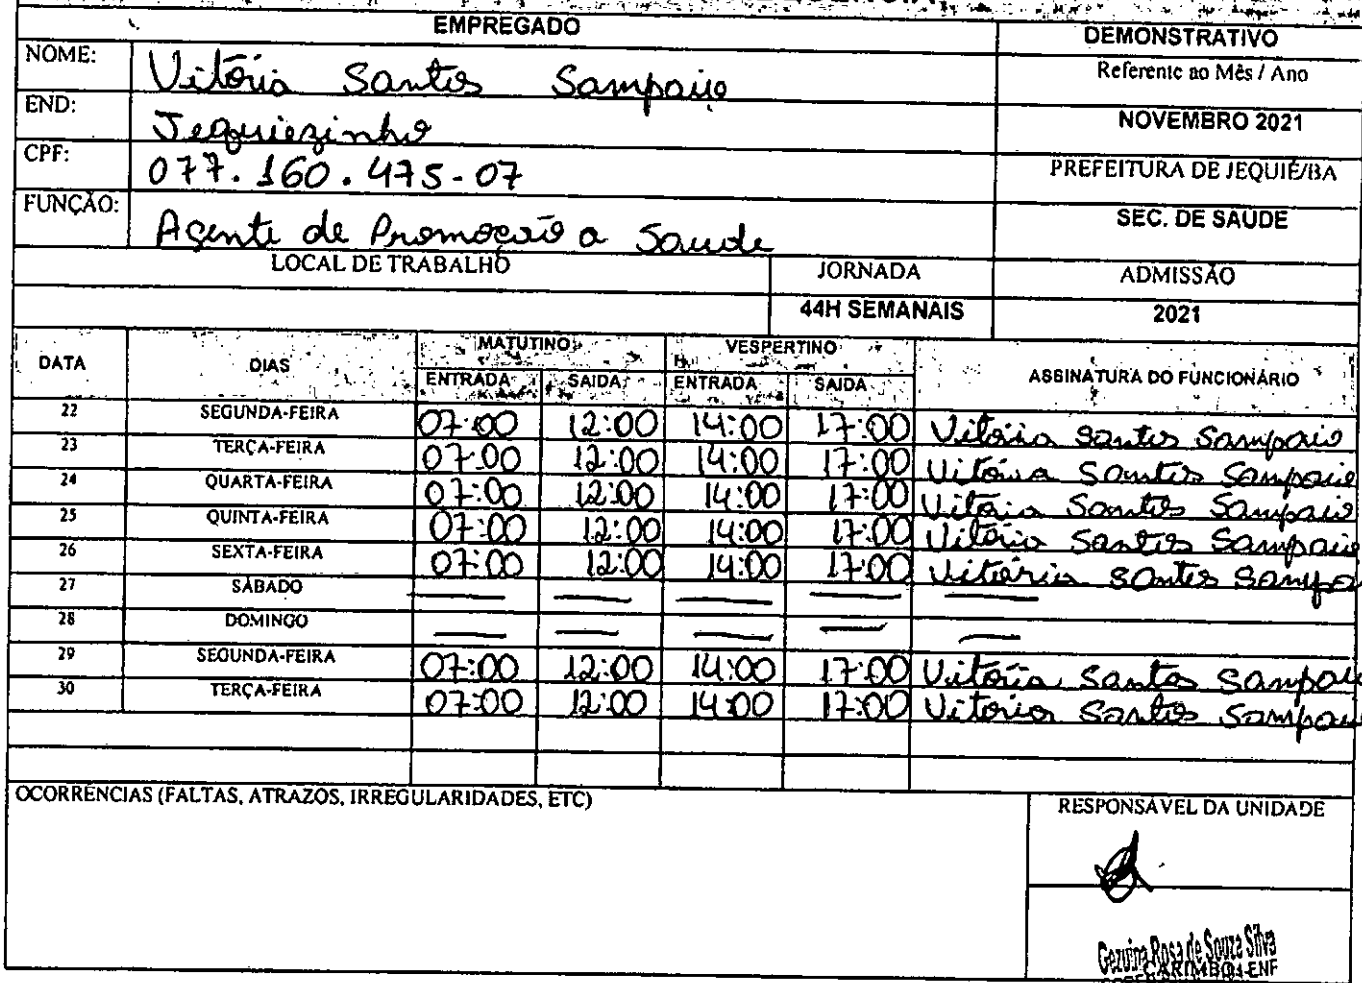 EMPREGADO
DEMONSTRATIVO
NOME: Vitória Santos Sampaio
Referente ao Mês / Ano
END: Jequiezinho
NOVEMBRO 2021
CPF: 077.160.475-07
PREFEITURA DE JEQUIÉ/BA
FUNÇÃO: Agente de Promoção a Saude
SEC. DE SAUDE
LOCAL DE TRABALHO JORNADA ADMISSÃO
44H SEMANAIS 2021
MATUTINO VESPERTINO
DATA DIAS ASSINATURA DO FUNCIONÁRIO
ENTRADA SAIDA ENTRADA SAIDA
22 SEGUNDA-FEIRA 07:00 12:00 14:00 17:00 Vitória Santos Sampaio
23 TERÇA-FEIRA 07:00 12:00 14:00 17:00 Vitória Santos Sampaio
24 QUARTA-FEIRA 07:00 12:00 14:00 17:00 Vitória Santos Sampaio
25 QUINTA-FEIRA 07:00 12:00 14:00 17:00 Vitória Santos Sampaio
26 SEXTA-FEIRA 07:00 12:00 14:00 17:00 Vitória Santos Sampa
27 SÁBADO
28 DOMINGO
29 SEGUNDA-FEIRA 07:00 12:00 14:00 17:00 Vitória Santos Sampaio
30 TERÇA-FEIRA 07:00 12:00 14:00 17:00 Vitória Santos Sampaio
OCORRÊNCIAS (FALTAS, ATRAZOS, IRREGULARIDADES, ETC)
RESPONSÁVEL DA UNIDADE
Gezuina Rosa de Souza Silva
CARIMBO
ENF